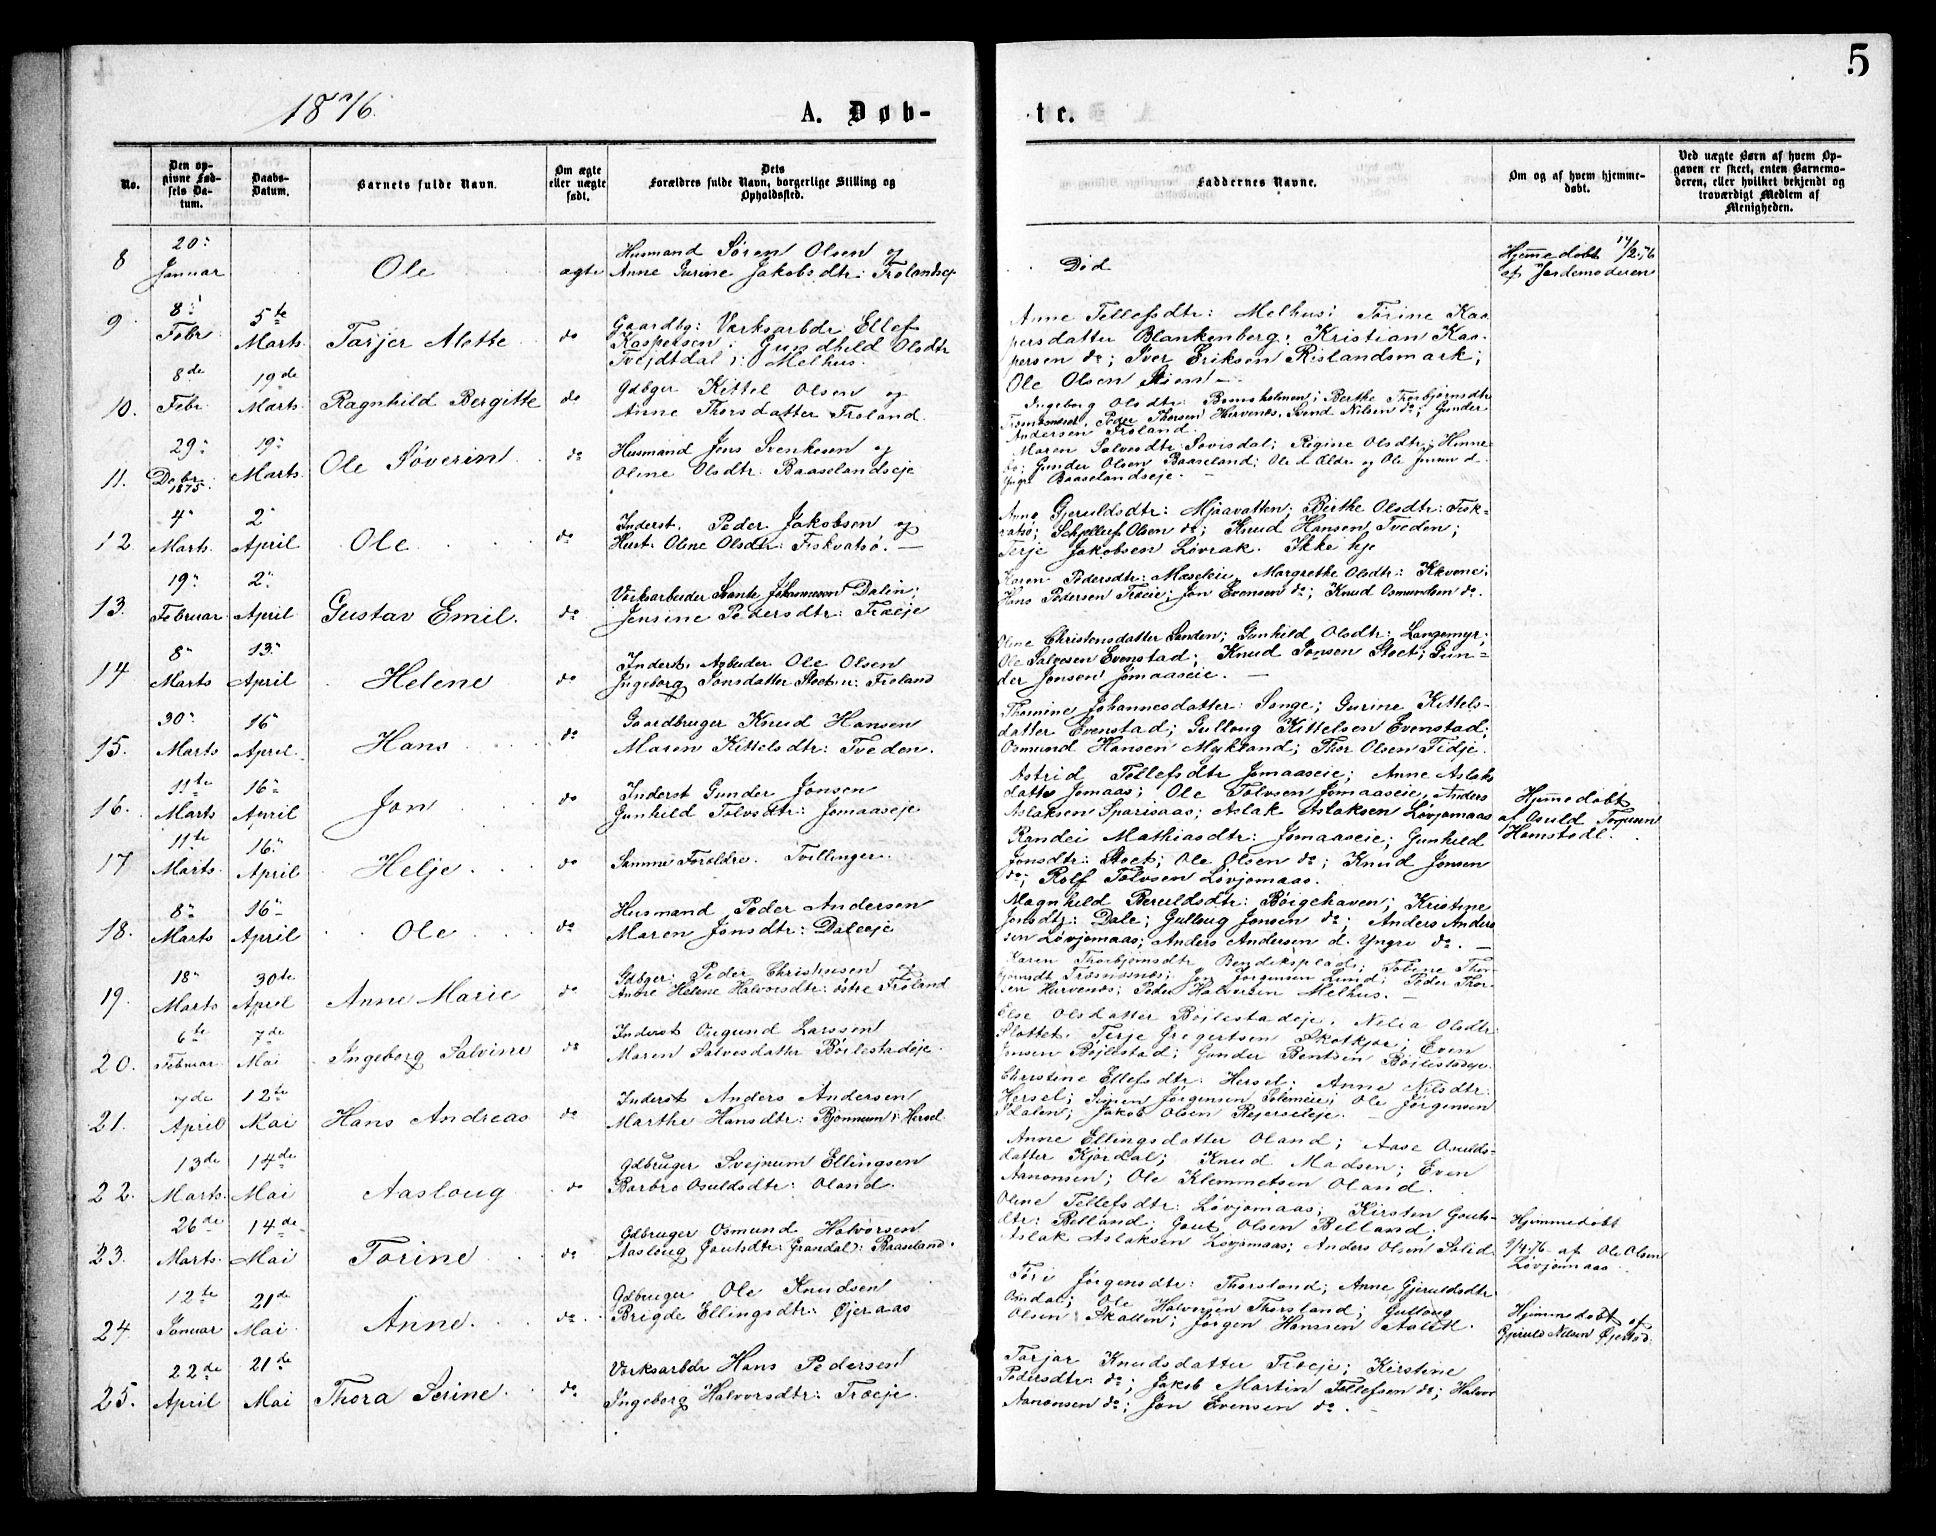 5
1876.
A. Døb-
te.
No.
Den op-
givne Fød-
sels Da-
tum.
Daabs-
Datum.
Barnets fulde Navn.
Om ægte
eller uægte
født.
Dets
Forældres fulde Navn, borgerlige Stilling og
Opholdssted.
Faddernes Navne.
Om og af hvem hjemme-
døbt.
Ved uægte Børn af hvem Op-
gaven er skeet, enten Barnemo-
deren, eller hvilket bekjendt og
troværdigt Medlem af
Menigheden.
8
20
Januar
Ole
ægte
Husmand Søren Olsen og
Anne Gurine Jakobsdtr: Frolandsej
Død
Hjemmedøbt 14/2 76
af Jordemoderen
9
8
Febr
5te
Marts
Tarjer Alette
do
Gaardbg: Værksarbdr: Ellef
Kaspersen; Gundhild Olsdtr
Tvejtdal i Melhus.
Anne Tellefsdtr: Melhus; Torine Kas
persdatter Blankenberg; Kristian Kas-
persen do; Iver Eriksen Rislandsmark;
Ole Olsen
10.
8de
Febr
19de
Marts
Ragnhild Bergitte
do
Gdbger Kittel Olsen og
Anne Thorsdatter Froland.
Ingeborg Olsdtr: Bomsholmen; Berthe Thorbjørnsdtr
Peder Thorsen Hurvenes, Svend Nilsen do; Gunder
Andersen Froland.
11.
29
Decbr
1875.
19
Marts
Ole Søverin
do
Husmand Jens Svenkesen og
Oline Olsdtr. Baaselandseje
Maren Salvesdtr: Savisdal; Regine Olsdtr: Hinne
do; Gunder Olsen Baaseland; Ole d. Ældre og Ole Jensen d.
Yngre Baaselandseje.
12
4
Marts
2
April
Ole
do
Inderst. Peder Jakobsen og
Hust: Oline Olsdtr. Fiskvatsø.
Anne Gjeruldsdtr: Mjaavatten; Birthe Olsdtr: Fisk-
vatsø; Schjellef Olsen do; Knud Hansen Tveden;
Terje Jakobsen Løvrak. Ikke hje
13.
19
Februar
2
April
Gustav Emil.
do
Værksarbeider Svante Johannesen Dalin;
Jensine Pedersdtr: Froeje
Karen Pedersdtr: Mæseleie, Margrethe Olsdtr: Kkvene;
Hans Pedersen Froeie; Jon Evensen do; Knud Osmundsen do.
14
8
Marts
13
April
Helene
do
Inderst. Arbeider Ole Olsen
Ingeborg Jonsdatter Stoet n: Froland
Oline Christensdatter Sanden; Gunhild Olsdtr: Langemyr;
Ole Salvesen Evenstad; Knud Jonsen Stoet; Gun-
der Jonsen Jomaaseie.
15.
30
Marts
16
April
Hans
do
Gaardbruger Knud Hansen
Maren Kittelsdtr: Tveden.
Thomine Johannesdatter: Songe; Gurine Kittels-
datter Evenstad; Gulloug Kittelsen Evenstad;
Osmund Hansen Mykland; Thor Olsen Tidje.
16.
11te
Marts
16
April
Jon
do
Inderst Gunder Jonsen
Gunhild Tolvsdtr: Jomaaseje
Astrid Tellefsdtr Jomaaseie; Anne Aslaks
datter Jomaas; Ole Tolvsen Jomaaseie, Anders
Aslaksen Sparisaas; Aslak Aslaksen Løvjomaas
Hjemmedøbt
af Osuld Terjusen
Homstødl.
17
11te
Marts
16
April
Helje
do
Samme Forældre. Tvillinger.
Randei Mathiasdtr: Jomaaseie; Gunhild
Jonsdtr: Stoet; Ole Olsen do; Knud Jonsen
do; Rolf Tolvsen Løvjomaas.
18.
8
Marts
16
April
Ole
do
Husmand Peder Andersen
Maren Jonsdtr: Daleeje
Magnhild Beruldsdtr: Børgehaven; Kristine
Jonsdtr: Dale; Gulloug Jonsen do; Anders Anders
sen Løvjomaas; Anders Andersen d. Yngre do.
19.
18
Marts
30te
April
Anne Marie
do
Gdbger: Peder Christensen og
Andre Helene Halvorsdtr: østre Froland
Karen Thorbjørnsdtr Bendeksplads; Toline Thor-
bjørnsdt Jon Jørgensen Lund; Peder Thor-
sen Hurvenes; Peder Halvorsen Melhus.
20.
6te
Februar
7de
Mai
Ingeborg Salvine
do
Inderst Ougund Larssen
Maren Salvesdatter Bøilestadeje.
Else Olsdatter Bøjlestadeje, Nelia Olsdtr
Slottet; Terje Gregertsen Skotkjær; Even
Jensen Bøjlestad; Gunder Bentsen Bøjlestadeje.
21.
7de
April
12te
Mai
Hans Andreas
do
Inderst Anders Andersen
Marthe Hansdtr: Bjønnum i Hersel
Christine Ellefsdtr: Hersel; Anne Nilsdtr:
Hersel; Simen Jørgensen Solemeie; Ole Jørgensen
Dalen; Jakob Olsen Rejerseleje.
22.
13de
Marts
14de
Mai
Aasloug
do
Gdbruger Svejnum Ellingsen
Barbro Osuldsdtr: Oland.
Anne Ellingsdatter Oland; Aase Osulds-
datter Kjørdal; Knud Madsen; Even
Aanonsen; Ole Klemmetsen Oland.
23.
26de
Marts
14de
Mai
Torine
do
Gdbruger Osmund Halvorsen
Aasloug Goutsdtr: Grandal: Baaseland.
Oline Tellefsdtr: Løvjomaas; Kirsten Gouts-
dtr: Belland; Gout Olsen Belland;
Aslak Aslaksen Løvjomaas; Anders Olsen Solid
Hjemmedøbt
9/4 76 af Ole Olsen
Løvjomaas
24
12te
Januar
21de
Mai
Anne
do
Gdbruger Ole Knudsen
Brigde Ellingsdtr: Øjeraas
Tori Jørgensdtr: Thorsland; Anne Gjeruldsdtr
Omdal; Ole Halvorsen Thorsland; Gulloug
Olsen Skallen; Jørgen Hanssen
Hjemmedøbt af
Gjeruld Nilsen
25.
22de
April
21de
Mai
Thora Serine
do
Værksarbdr Hans Pedersen
Ingeborg Halvorsdtr: Froeje.
Tarjar Knudsdatter Froeje; Kirstine
Pedersdtr: do; Jakob Martin Tellefsen do; Halvor
Aanonsen do; Jon Evensen do.